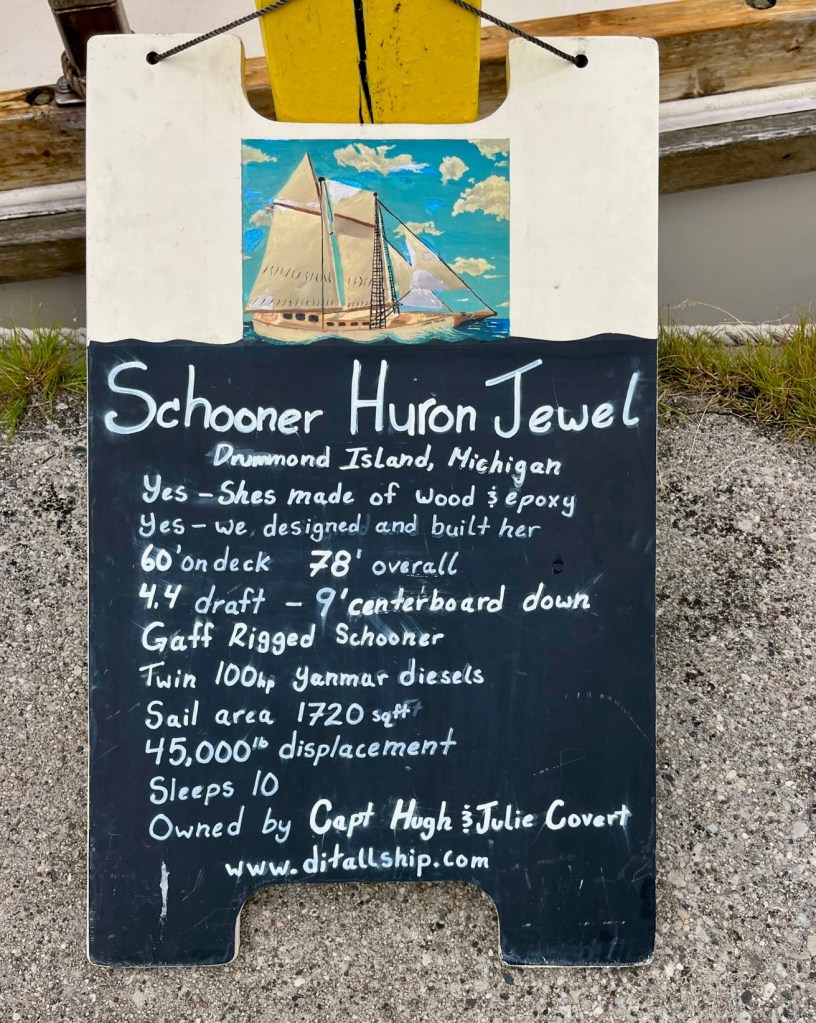 Schooner Huron Jewel
Drummond Island, Michigan
Yes - Shes made of wood & epoxy
Yes - we designed and built her
60' on deck 78' overall
4.4 draft - 9' centerboard down
Gaff Rigged Schooner
Twin 100hp Yanmar diesels
Sail area 1720 sqft
45,000lb displacement
Sleeps 10
Owned by Capt Hugh & Julie Covert
www.ditallship.com